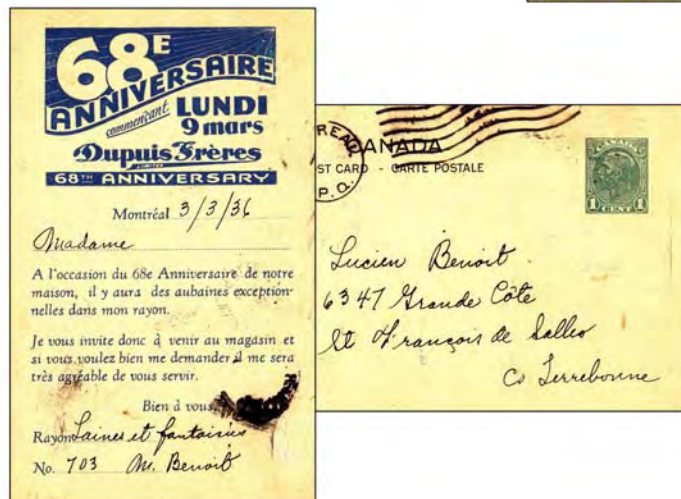 68E
ANNIVERSAIRE
commençant LUNDI
9 mars
Dupuis Frères
LIMITÉE
68TH ANNIVERSARY
Montréal 3/3/36
Madame
A l'occasion du 68e Anniversaire de notre
maison, il y aura des aubaines exception-
nelles dans mon rayon.
Je vous invite donc à venir au magasin et
si vous voulez bien me demander il me sera
très agréable de vous servir.
Bien à vous,
Rayon Laines et fantaisies
No. 703 M. Benoit
REAL
P.Q.
CANADA
ST CARD - CARTE POSTALE
CANADA
1 CENT 1
Lucien Benoit
6347 Grande Côte
St François de Salles
Co Terrebonne